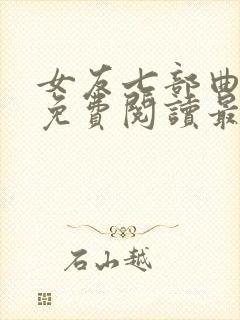 女友七部曲
免費閱讀最
石山越